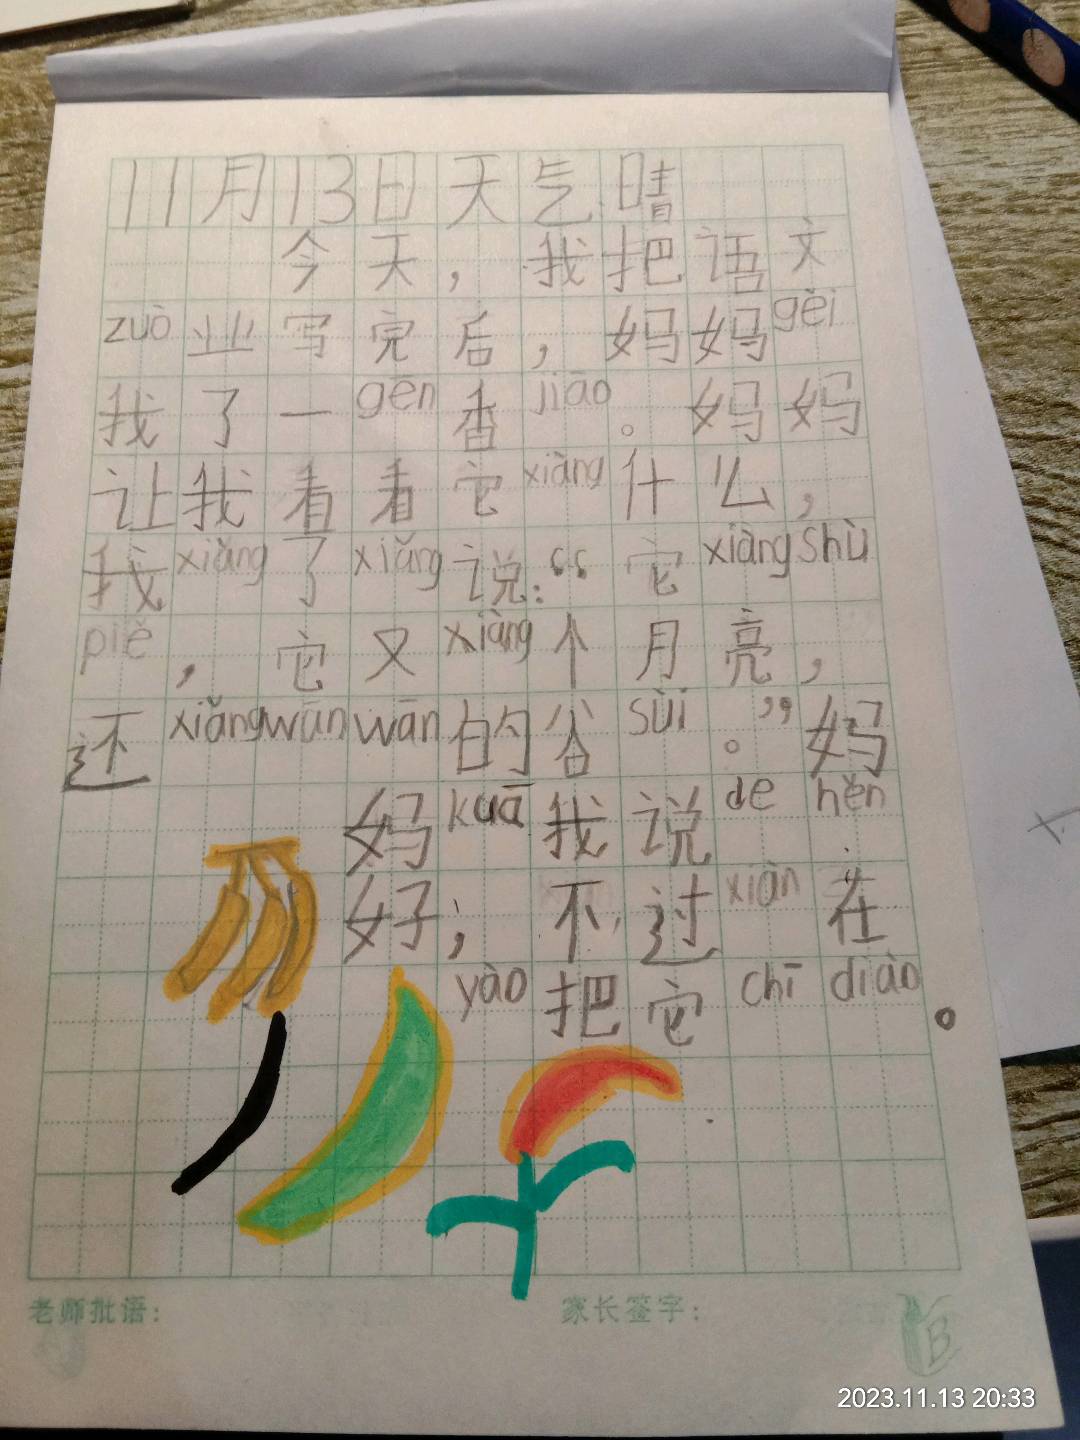 11月13日天气晴
今天，我把语文
zuò业写完后，妈妈gěi
我了一gēn香jiāo。妈妈
让我看看它xiàng什么，
我xiǎng了xiǎng说：“它xiàngshù
piě，它又xiàng个月亮，
还xiǎngwānwān的谷sùi。”妈
妈kuā我说de hěn
好；不过xiàn在
yào把它chī diào。
老师批语：
家长签字：
B
2023.11.13 20:33